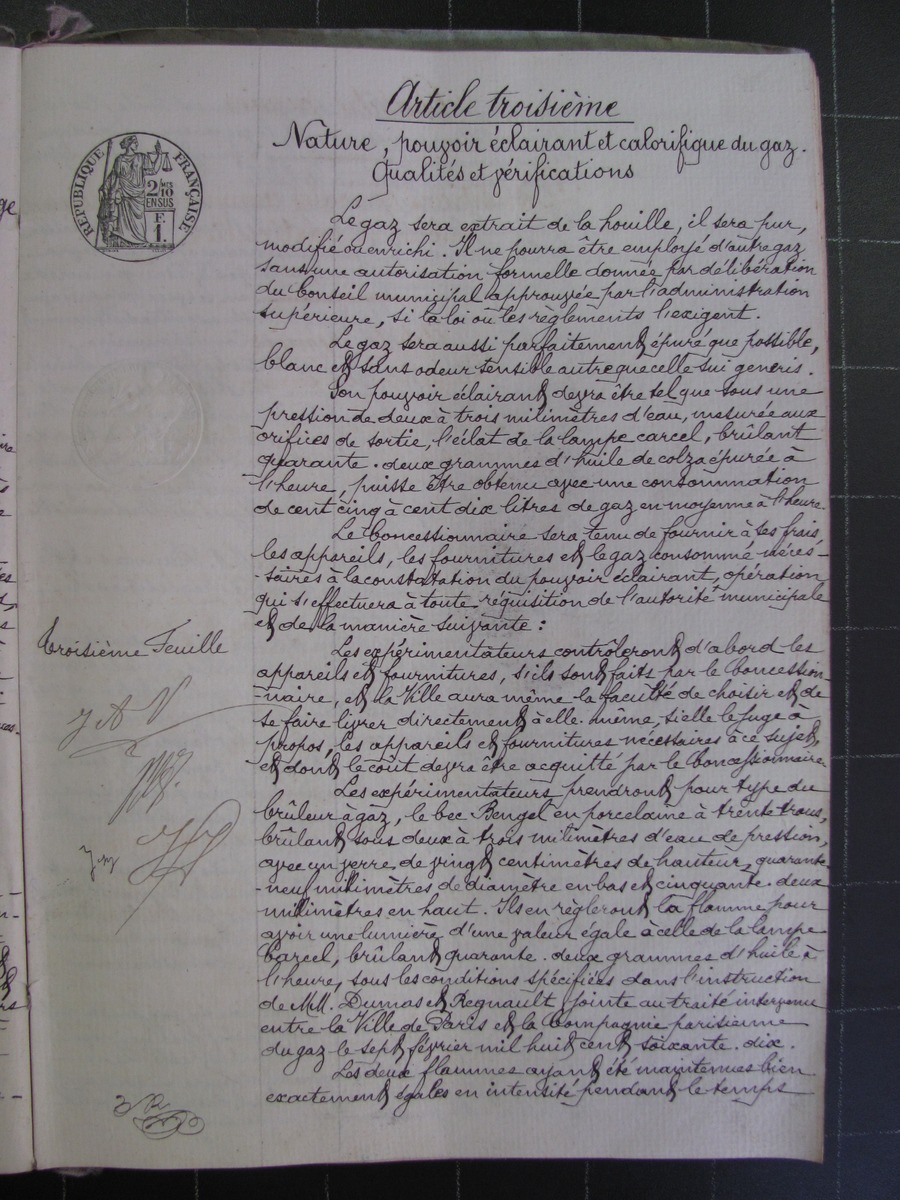 Article troisième
Nature, pouvoir éclairant et calorifique du gaz.
Qualités et vérifications
RÉPUBLIQUE FRANÇAISE
2/10 EN SUS
F. 1.
Le gaz sera extrait de la houille, il sera pur,
modifié ou enrichi. Il ne pourra être employé d'autre gaz
sans une autorisation formelle donnée par délibération
du Conseil municipal approuvée par l'administration
supérieure, si la loi ou les règlements l'exigent.
Le gaz sera aussi parfaitement épuré que possible,
blanc et sans odeur sensible autre que celle sui generis.
Son pouvoir éclairant devra être tel que sous une
pression de deux à trois milimètres d'eau, mesurée aux
orifices de sortie, l'éclat de la lampe carcel, brûlant
quarante-deux grammes d'huile de colza épurée à
l'heure, puisse être obtenu avec une consommation
de cent cinq à cent dix litres de gaz en moyenne à l'heure.
Le Concessionnaire sera tenu de fournir à ses frais,
les appareils, les fournitures et le gaz consommé néces-
-saires à la constatation du pouvoir éclairant, opération
qui s'effectuera à toute réquisition de l'autorité municipale
et de la manière suivante :
Troisième Feuille
Les expérimentateurs contrôleront d'abord les
appareils et fournitures, s'ils sont faits par le Concession-
-naire, et la Ville aura même la faculté de choisir et de
se faire livrer directement à elle-même, si elle le juge à
propos, les appareils et fournitures nécessaires à ce sujet,
et dont le coût devra être acquitté par le Concessionnaire.
Les expérimentateurs prendront pour type du
brûleur à gaz, le bec Bengel en porcelaine à trente trous,
brûlant sous deux à trois milimètres d'eau de pression,
avec un verre de vingt centimètres de hauteur, quarante
-neuf millimètres de diamètre en bas et cinquante-deux
millimètres en haut. Ils en règleront la flamme pour
avoir une lumière d'une valeur égale à celle de la lampe
Carcel, brûlant quarante-deux grammes d'huile à
l'heure, sous les conditions spécifiées dans l'instruction
de MM. Dumas et Regnault, jointe au traité intervenu
entre la Ville de Paris et la Compagnie parisienne
du gaz le sept février mil huit cent soixante-dix.
Les deux flammes ayant été maintenues bien
exactement égales en intensité pendant le temps